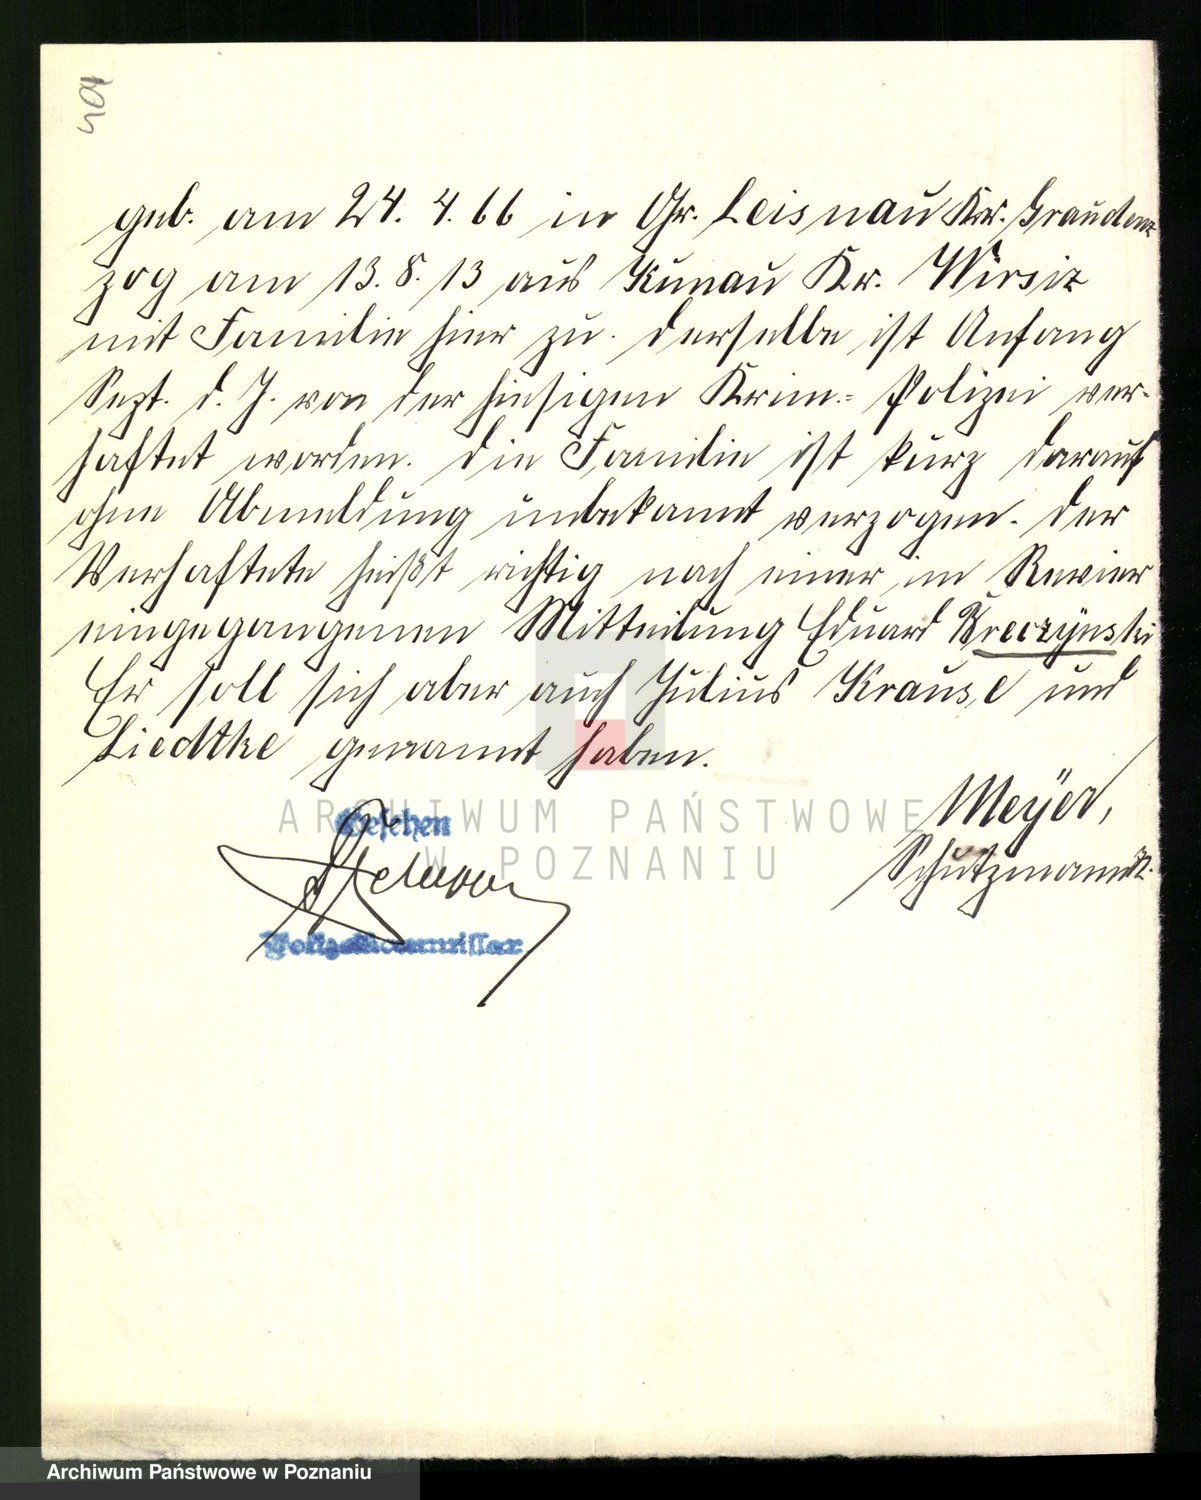 104
geb. am 24. 4. 66 in Gr. Leisnau Kr. Graudenz
zog am 13. 8. 13 aus Kunau Kr. Wirsitz
mit Familie hier zu. Derselbe ist Anfang
Sept. d. J. von der hiesigen Krim.= Polizei ver-
haftet worden. Die Familie ist kurz darauf
ohne Abmeldung unbekannt verzogen. Der
Verhaftete heißt richtig nach einer im Revier
eingegangenen Mitteilung Eduard Kreczynski
Er soll sich aber auch Julius Krause und
Liedtke genannt haben.
Meyer,
Schutzmann
Gesehen
Polizeikommissar
ARCHIWUM PAŃSTWOWE
W POZNANIU
Archiwum Państwowe w Poznaniu